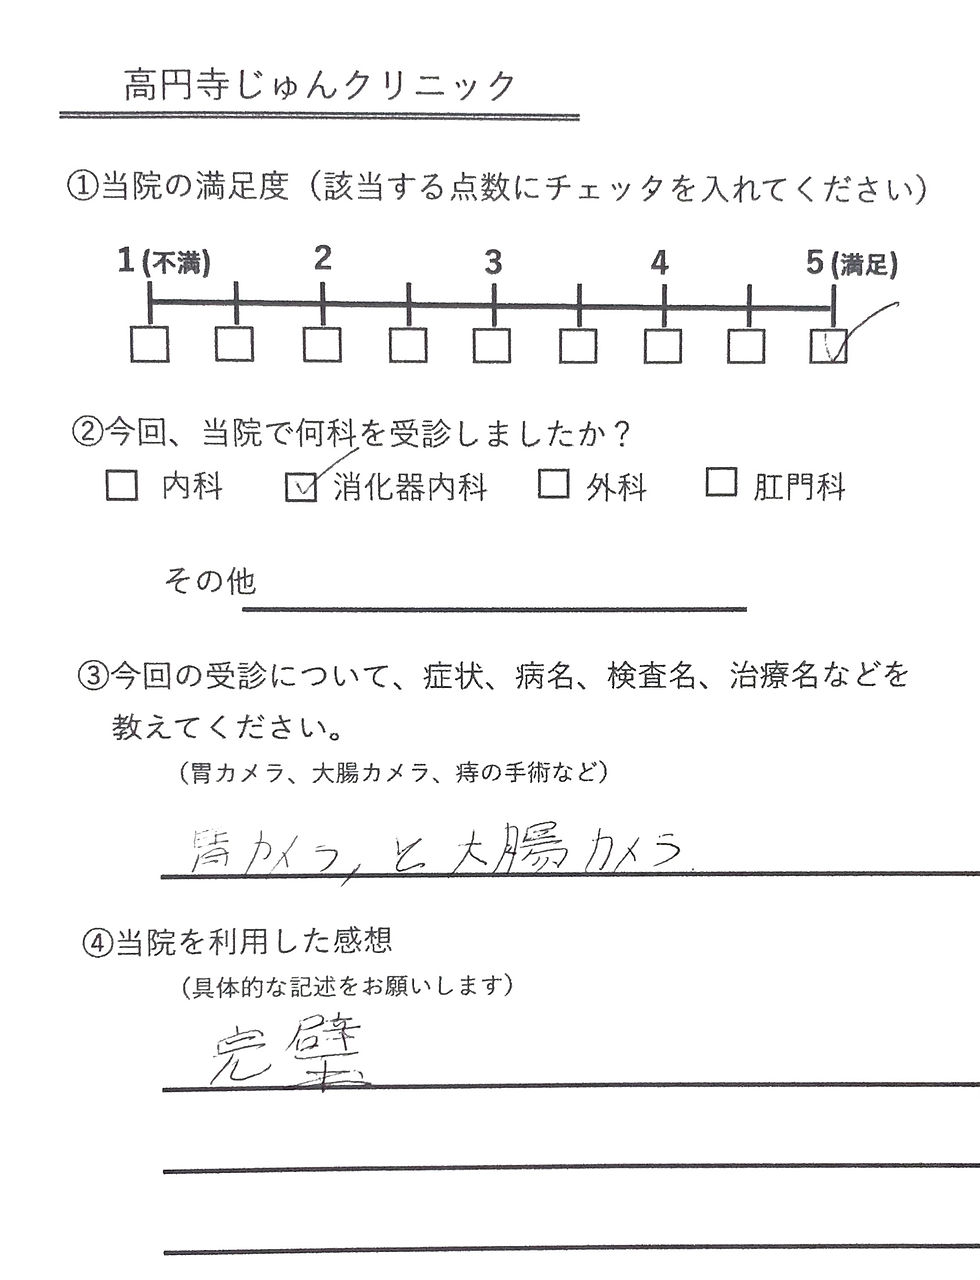 高円寺じゅんクリニック
①当院の満足度（該当する点数にチェッタを入れてください）
1 (不満) 2 3 4 5 (満足)
②今回、当院で何科を受診しましたか？
内科 消化器内科 外科 肛門科
その他
③今回の受診について、症状、病名、検査名、治療名などを
教えてください。
（胃カメラ、大腸カメラ、痔の手術など）
胃カメラ,と大腸カメラ.
④当院を利用した感想
（具体的な記述をお願いします）
完璧